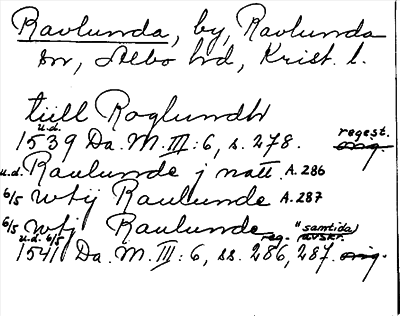 Ravlunda, by, Ravlunda
sn, Albo hd, Krist. l.
tiill Roglundh
u.d.
1539 Da. M. III: 6, s. 278. regest. orig.
u.d. Raulunde j natt. A. 286
6/5 wtij Raulunde A. 287
6/5 wtj Raulunde
u.d. 6/5 reg. "samtida avskr.
1541 Da. M. III: 6, ss. 286, 287. orig.